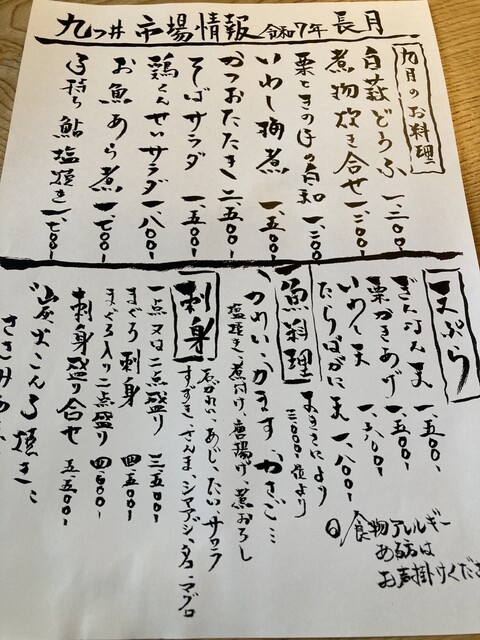 九つ井 市場情報 令和7年 長月
九月のお料理
白萩どうふ 一、二〇〇-
煮物炊き合せ 一、二〇〇-
栗ときのこの白和 一、二〇〇-
いわし梅煮 一、五〇〇-
かつおたたき 二、五〇〇-
そばサラダ 一、五〇〇-
鶏くんせいサラダ 一、八〇〇-
お魚あら煮 一、七〇〇-
子持ち鮎塩焼き 一、七〇〇-
天ぷら
ぎんなん天 一、五〇〇-
栗かきあげ 一、五〇〇-
いわし天 一、八〇〇-
たらばがに天 一、八〇〇-
◎食物アレルギー
ある方は
お声掛けくださ
魚料理
大きさにより
三、〇〇〇位より
かれい、かます、かさご…
塩焼き、煮付け、唐揚げ、煮おろし
刺身
石がれい、あじ、たい、サワラ
すずき、さんま、シマアジ、名、マグロ
一点又は二点盛り 三、五〇〇-
まぐろ刺身 四、五〇〇-
まぐろ入り二点盛り 四、五〇〇-
刺身盛り合せ 五、五〇〇-
炭火こんろ焼き
ささみ